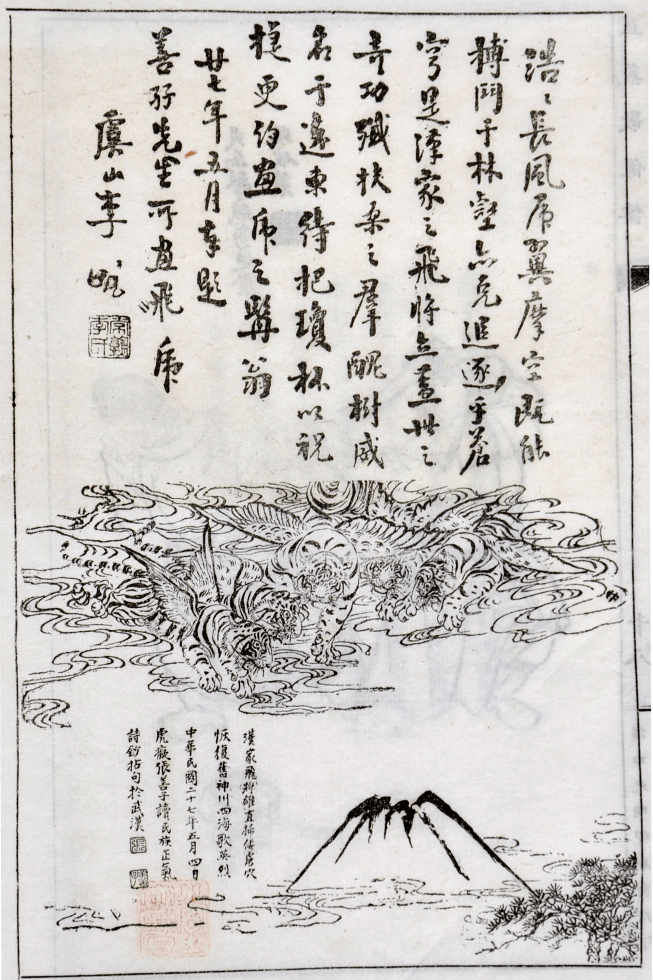 浩〻長風虎翼摩空既能
搏鬥于林壑亦克追逐乎蒼
穹是漢家之飛將立蓋世之
奇功殲扶桑之群醜樹威
名于遼東待把瓊杯以祝
捷更約畫虎之髯翁
廿七年五月奉題
善孖先生所畫飛虎
虞山李
漢家飛將雄直搗倭虜穴
恢復舊神州四海歌英烈
中華民國二十七年五月四日
虎癡張善子讀民族正氣
詩鈔拈句於武漢